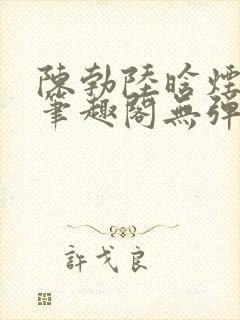 陳勃陸晗煙
筆趣閣無彈
許戈良